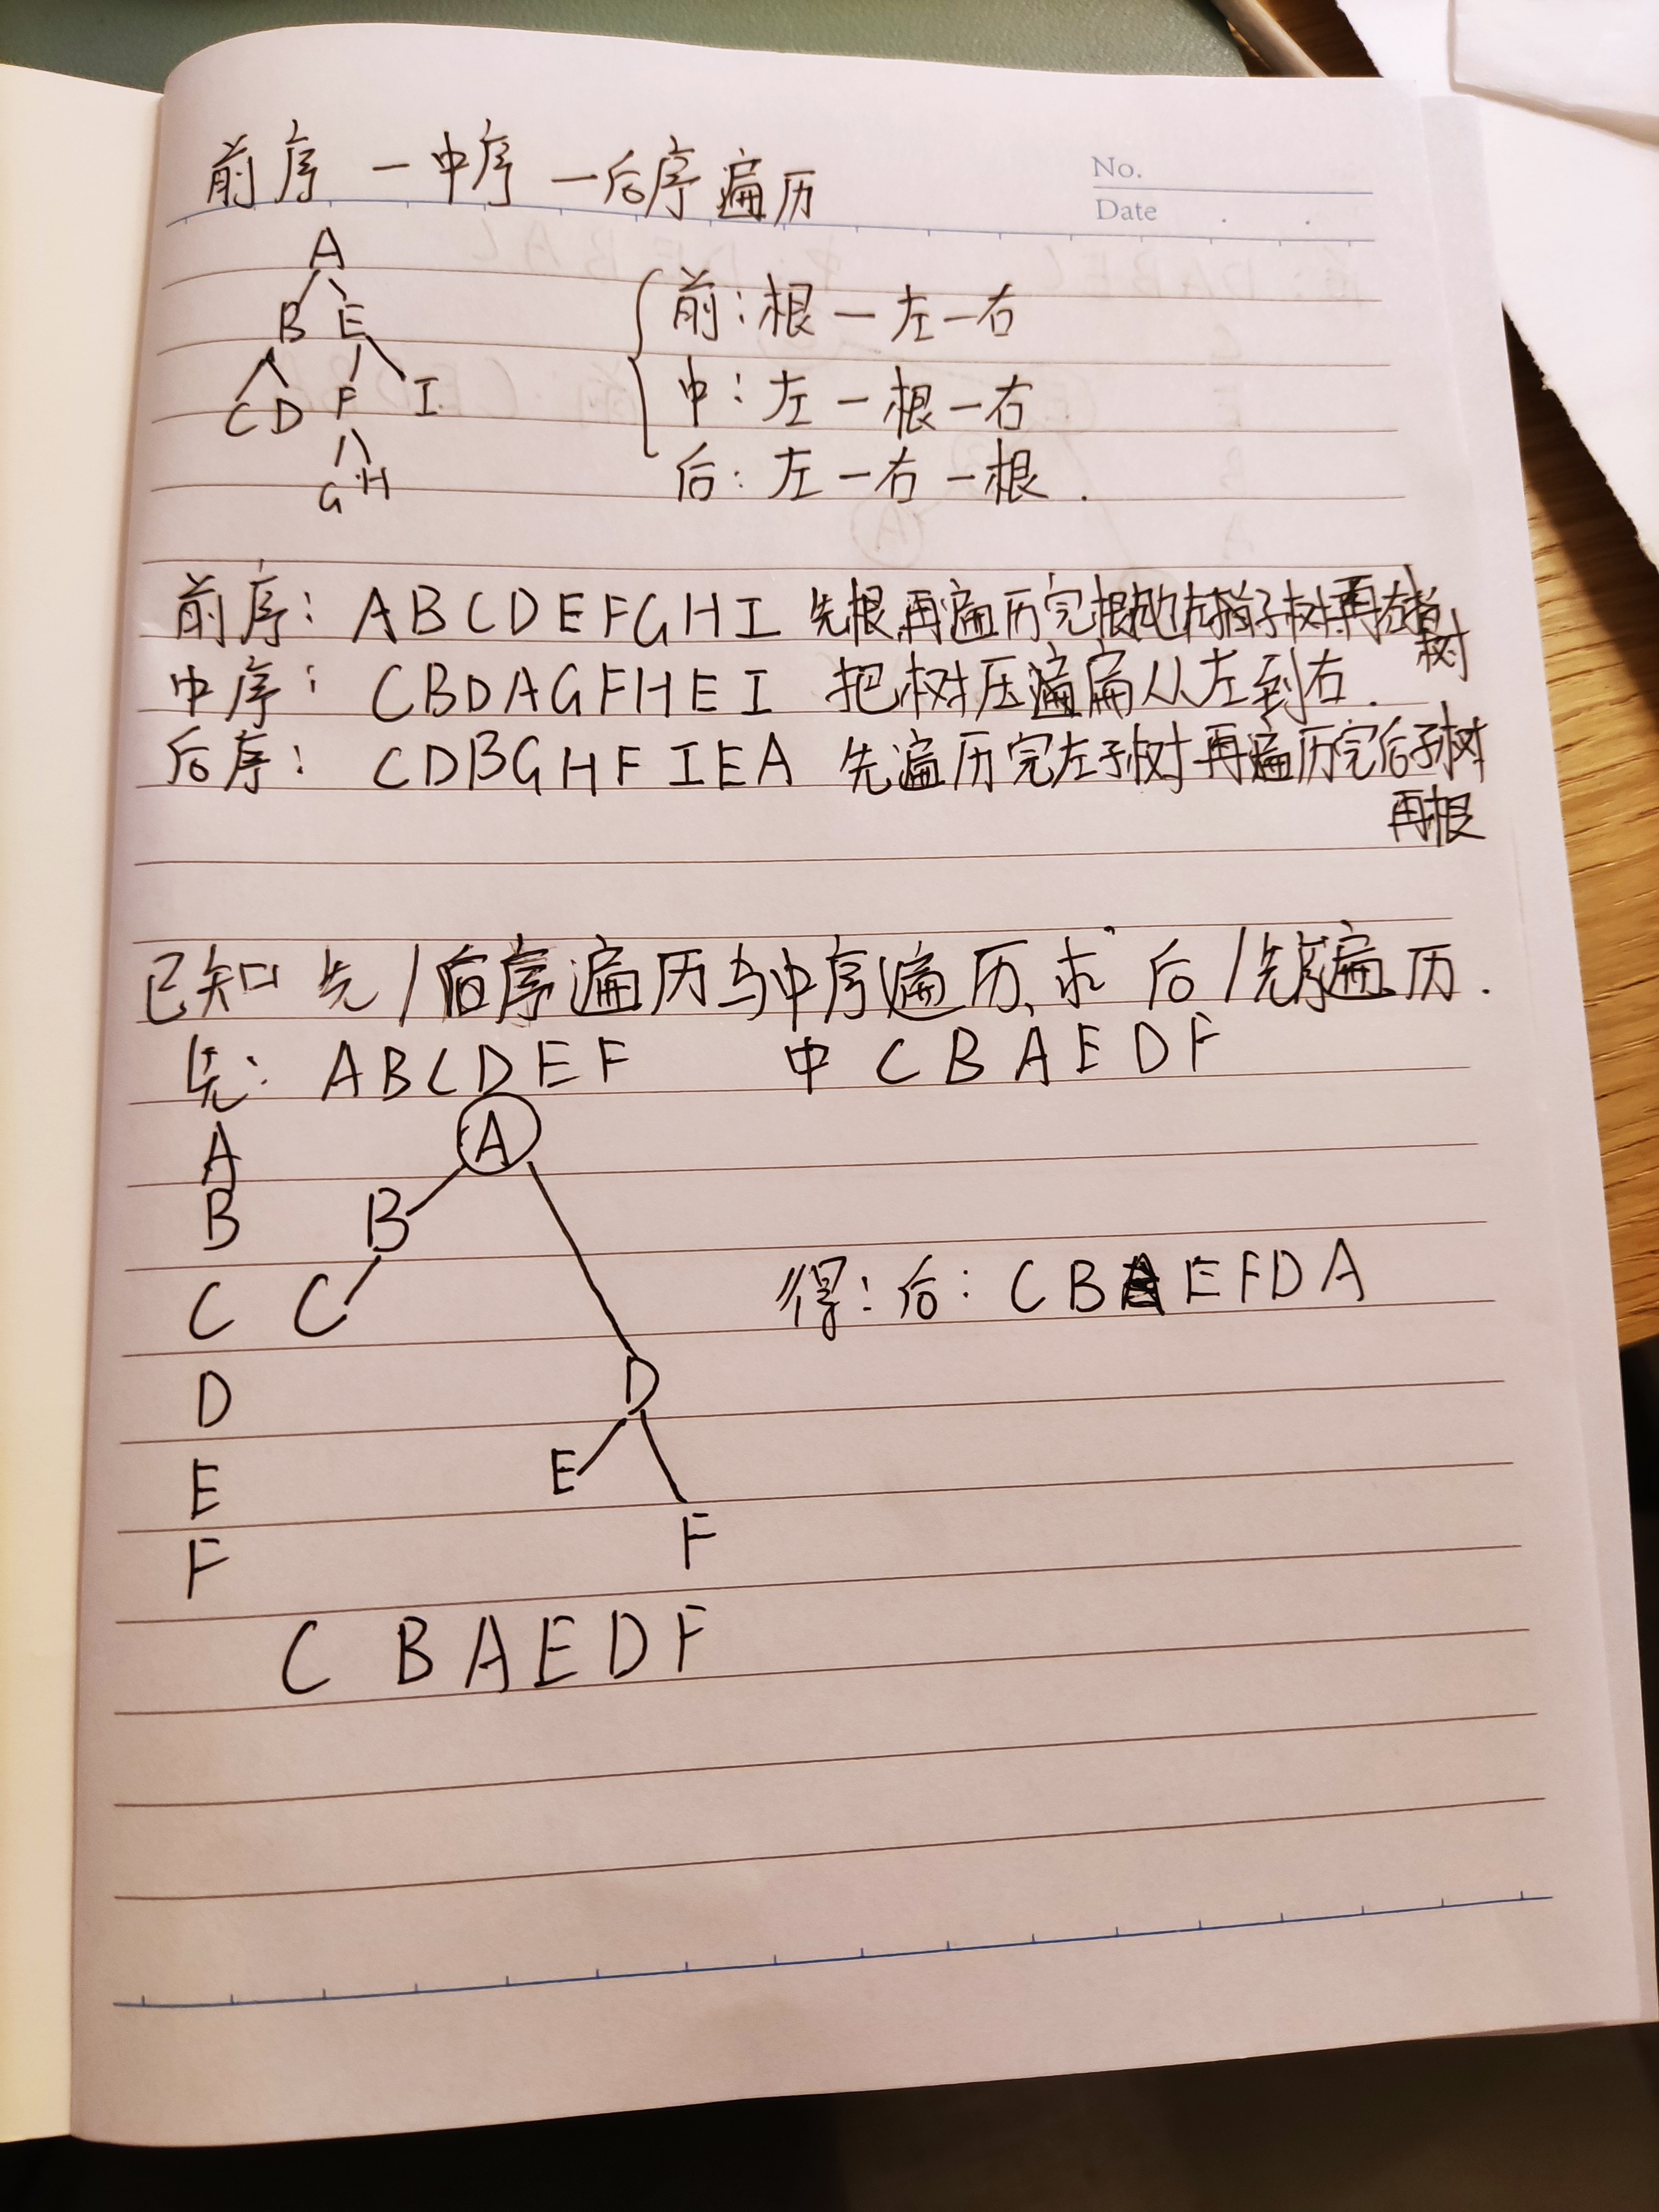 前序 — 中序 — 后序遍历
No.
Date
A
B E
C D F I
G H
前：根 — 左 — 右
中：左 — 根 — 右
后：左 — 右 — 根.
前序： A B C D E F G H I 先根再遍历完根 左 子树再右
树
中序： C B D A G F H E I 把树压 扁从左到右.
后序： C D B G H F I E A 先遍历完左子树再遍历完后子树
再根
已知 先/后序遍历与中序遍历,求 后/先序遍历.
先： A B C D E F 中 C B A E D F
A A
B B
C C 得：后： C B E F D A
D D
E E
F F
C B A E D F